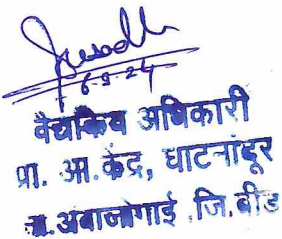 6-9-24
वैद्यकिय अधिकारी
प्रा. आ. केंद्र, घाटनांदूर
ता. अंबाजोगाई, जि. बीड